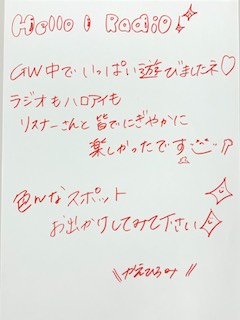 Hello! Radio
GW中でいっぱい遊びましたネ♡
ラジオもハロアイも
リスナーさんと皆でにぎやかに
楽しかったです
色んなスポット
お出かけしてみて下さい
\\かえひろみ//